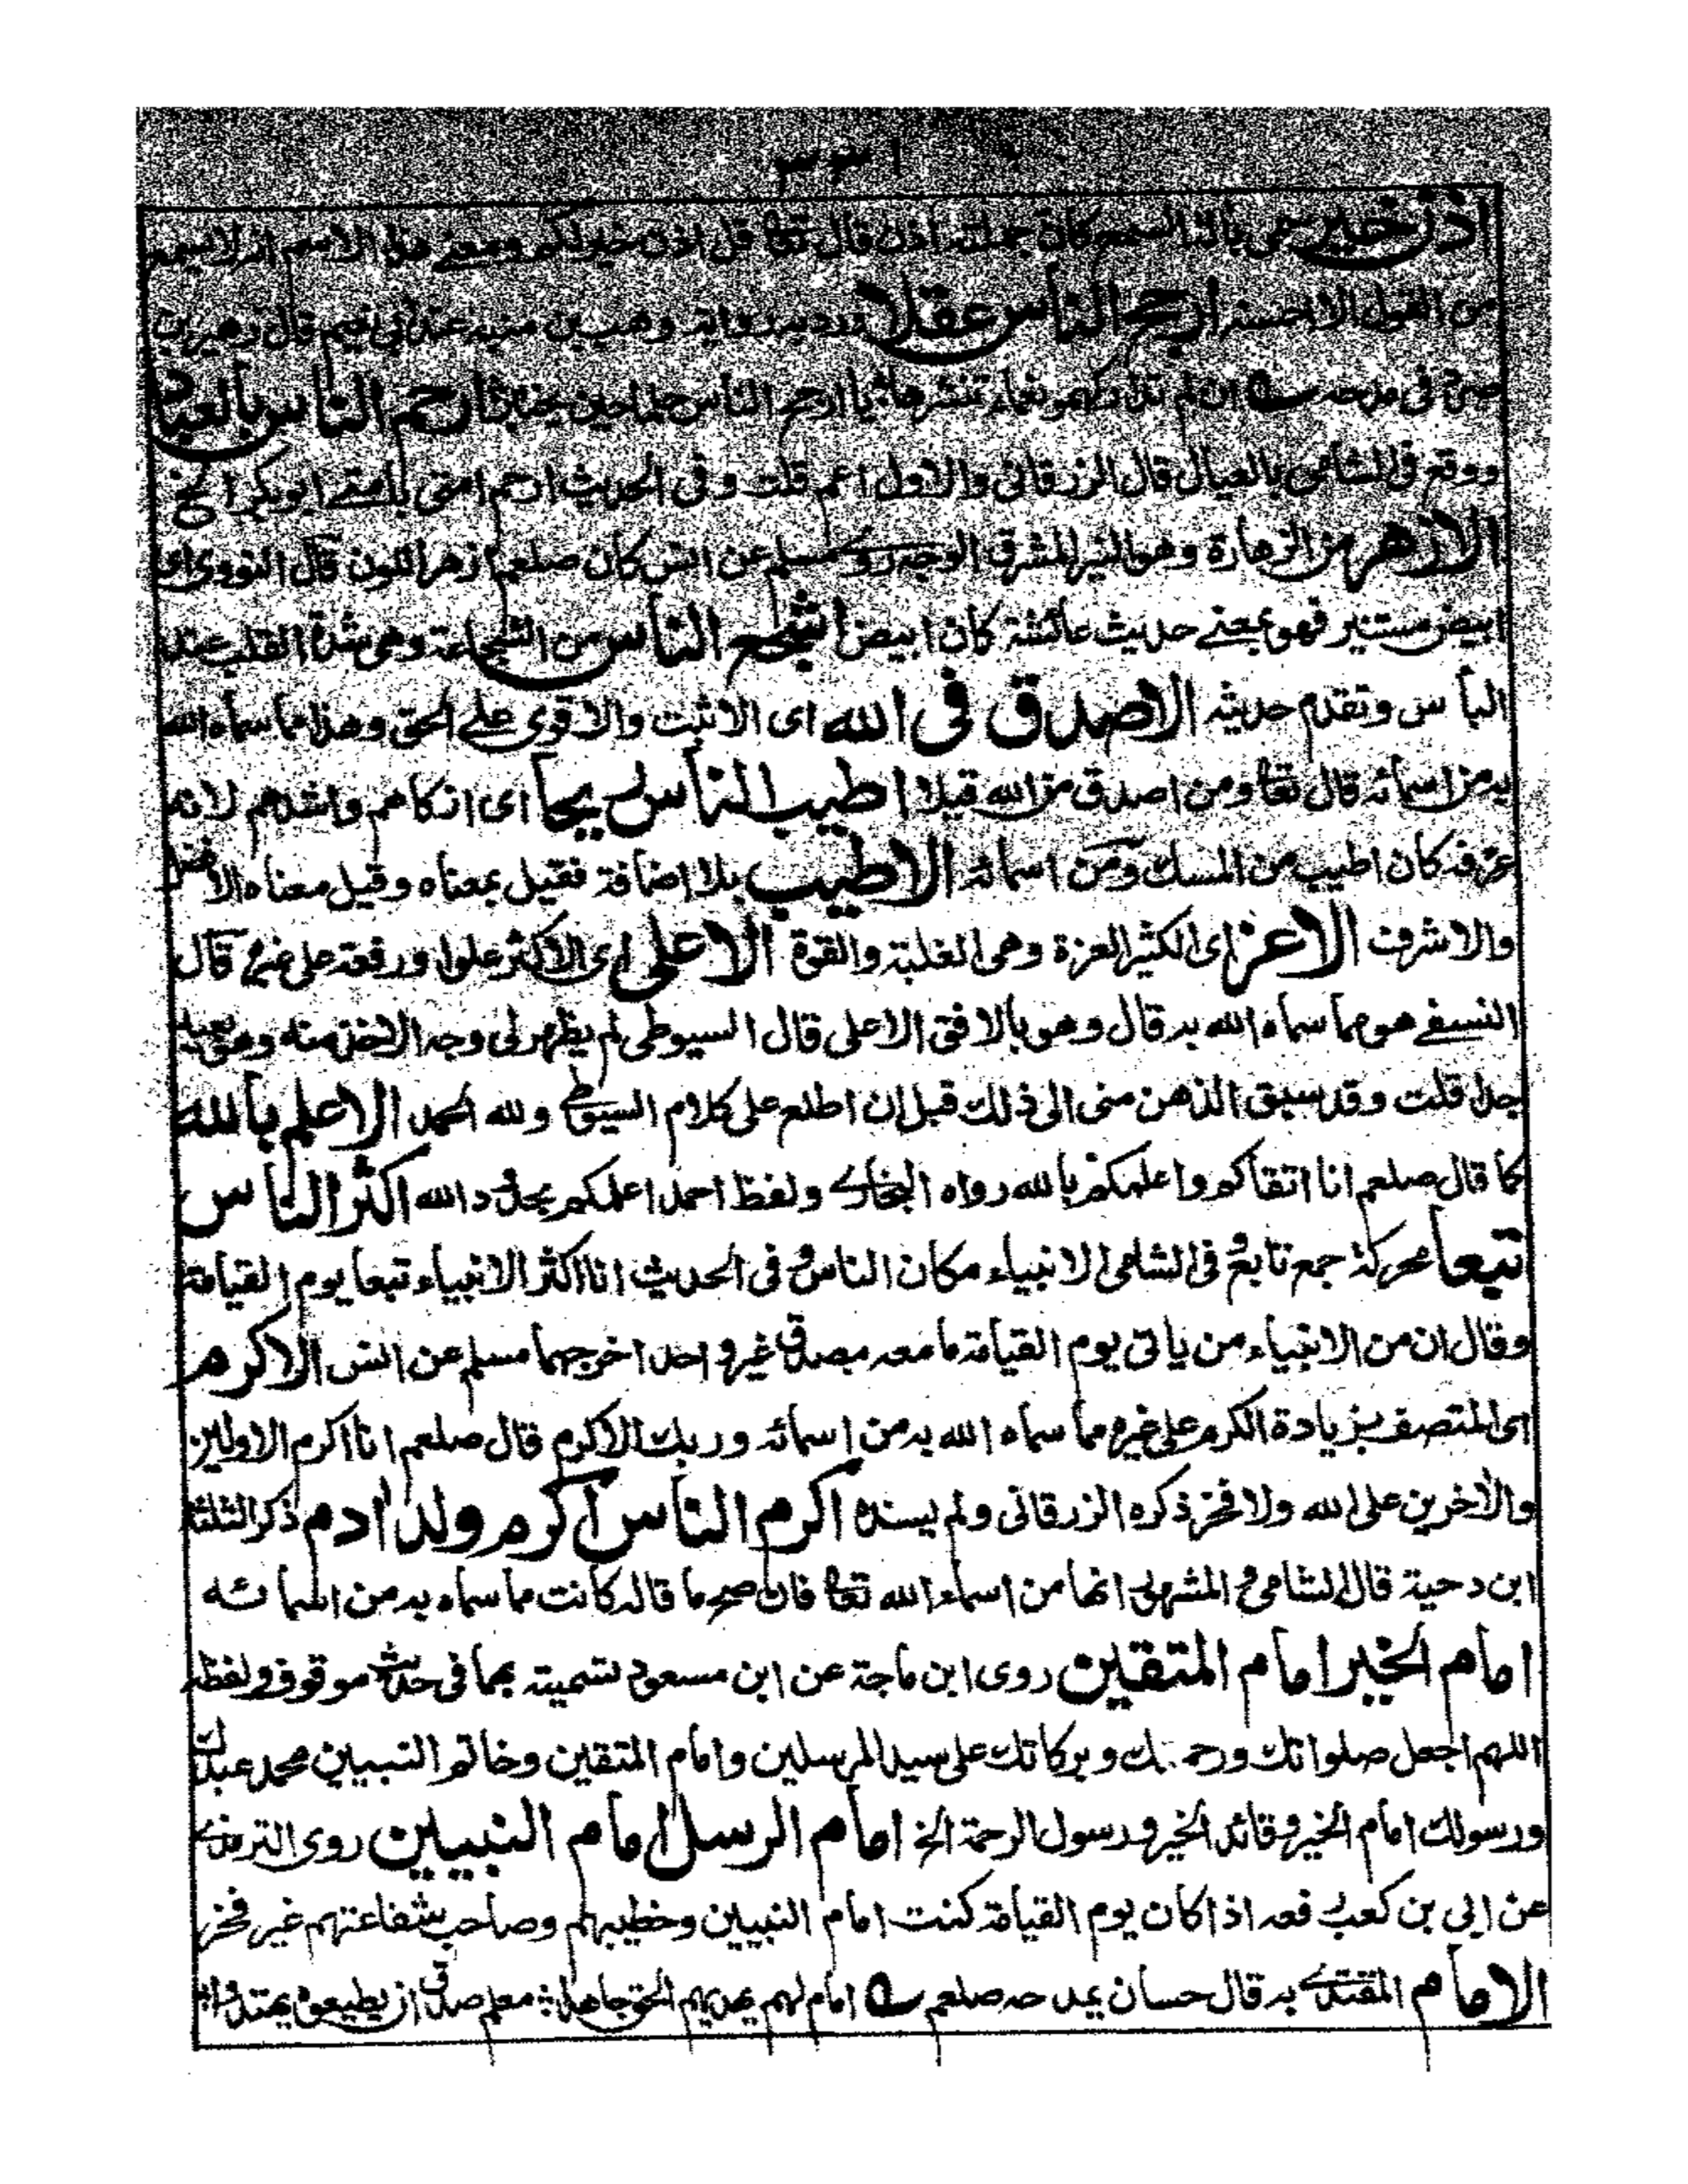 اذن خير سمى بآلة السمع كان جملته اذن قال تعا قل اذن خير لكم ومعنى هذا الاسم انه لا يسمع
من القول الا احسنه ارجح الناس عقلا ورد به رواية وهب بن منبه عند ابي نعيم قال زهير بن
فى مدحه ان لم تدارکهمو نعماء تنشرها يا ارجح الناس حلما حين يختبر ارحم الناس بالعباد
ووقع فى الشامى بالعيال قال الزرقانى والاول اعم قلت وفى الحديث ارحم امتى بامتى ابوبكر الخ
الازهر من الزهارة وهو النير المشرق الوجه روى مسلم عن انس كان صلعم ازهر اللون قال النووى اى
ابيض مستنير فهو بمعنى حديث عائشة كان ابيض اشجع الناس من الشجاعة وهى شدة القلب عند
البأس وتقدم حديثه الاصدق فى الله اى الاثبت والاقوى على الحق وهذا مما سماه الله
به من اسمائه قال تعا ومن اصدق من الله قيلا اطيب الناس ريحا اى ازكاهم واشدهم لانه
عرفه كان اطيب من المسك ومن اسمائه الاطيب بلا اضافة فقيل بمعناه وقيل معناه الافضل
والاشرف الاعز اى الكثير العزة وهى الغلبة والقوة الاعلى اى الاكثر علوا ورفعة على غيره قال
النسفى هو مما سماه الله به قال وهو بالافق الاعلى قال السيوطى لم يظهر لى وجه الاخذ منه وهو بعيد
جدا قلت وقد سبق الذهن منى الى ذلك قبل ان اطلع على كلام السيوطى ولله الحمد الاعلم بالله
كما قال صلعم انا اتقاكم واعلمكم بالله رواه البخارى ولفظ احمد اعلمكم بحدود الله اكثر الناس
تبعا محركة جمع تابع وفى الشامى الانبياء مكان الناس وفى الحديث انا اكثر الانبياء تبعا يوم القيامة
وقال ان من الانبياء من ياتى يوم القيامة ما معه مصدق غير واحد اخرجهما مسلم عن انس الاكرم
اى المتصف بزيادة الكرم على غيره مما سماه الله به من اسمائه وربك الاكرم قال صلعم انا اكرم الاولين
والاخرين على الله ولا فخر ذكره الزرقانى ولم يسنده اكرم الناس اكرم ولد ادم ذكر الثلثة
ابن دحية قال الشامى و المشهور انها من اسماء الله تعا فان صح ما قاله كانت مما سماه به من اسمائه
امام الخير امام المتقين روى ابن ماجة عن ابن مسعود تسميته بهما فى حديث موقوف ولفظه
اللهم اجعل صلواتك ورحمتك وبركاتك على سيد المرسلين وامام المتقين وخاتم النبيين محمد عبدك
ورسولك امام الخير وقائد الخير ورسول الرحمة الخ امام الرسل امام النبيين روى الترمذى
عن ابي بن كعب رفعه اذا كان يوم القيامة كنت امام النبيين وخطيبهم وصاحب شفاعتهم غير فخر
الامام المقتدى به قال حسان يمدحه صلعم امام لهم يهديهم الحق جاهدا معلم صدق ان يطيعوه يهتدوا